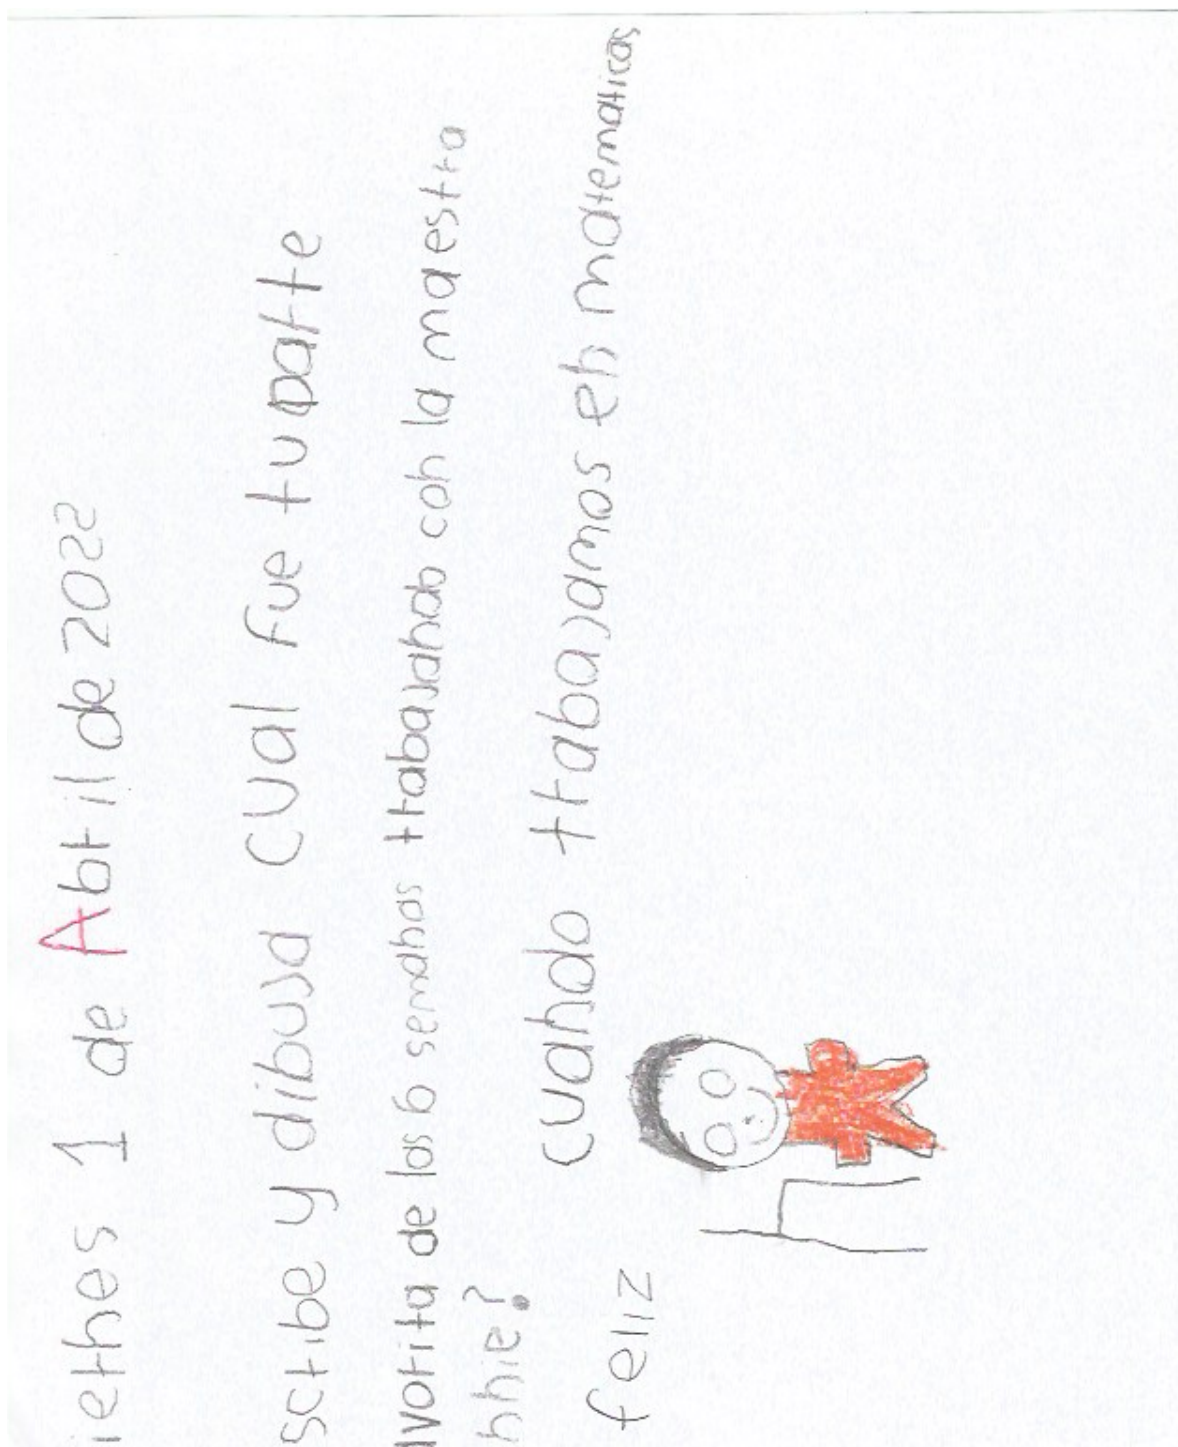 iernes 1 de Abril de 2022
scribe y dibuja cual fue tu parte
avorita de las 6 semanas trabajando con la maestra
nnie?
cuando trabajamos en matematicas
feliz